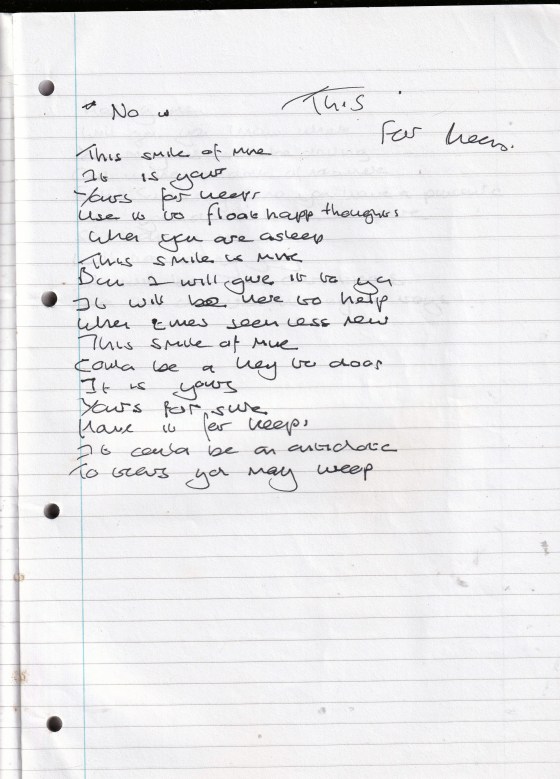 This
* No
For keeps.
This smile of mine
It is yours
Yours for keeps
Use it to float happ thoughts
When you are asleep
This smile is mine
But I will give it to you
It will be here to help
When times seem less new
This smile of mine
Could be a key to door
It is yours
Yours for sure
Have it for keeps
It could be an antidote
To tears you may weep